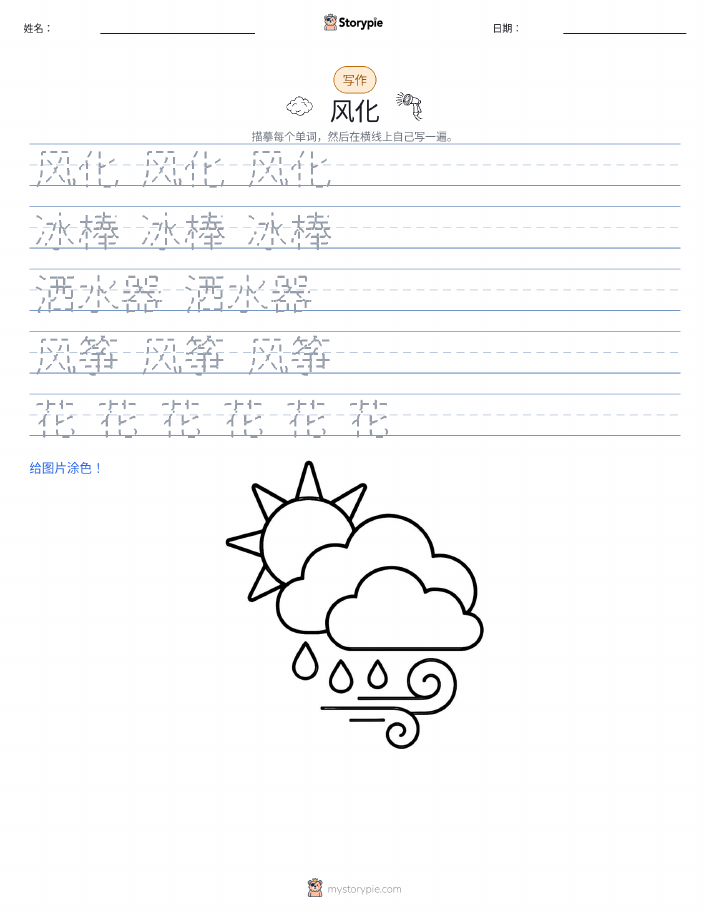 姓名： Storypie 日期：
写作
风化
描摹每个单词，然后在横线上自己写一遍。
风化 风化 风化
冰棒 冰棒 冰棒
洒水器 洒水器
风筝 风筝 风筝
花 花 花 花 花 花
给图片涂色！
mystorypie.com